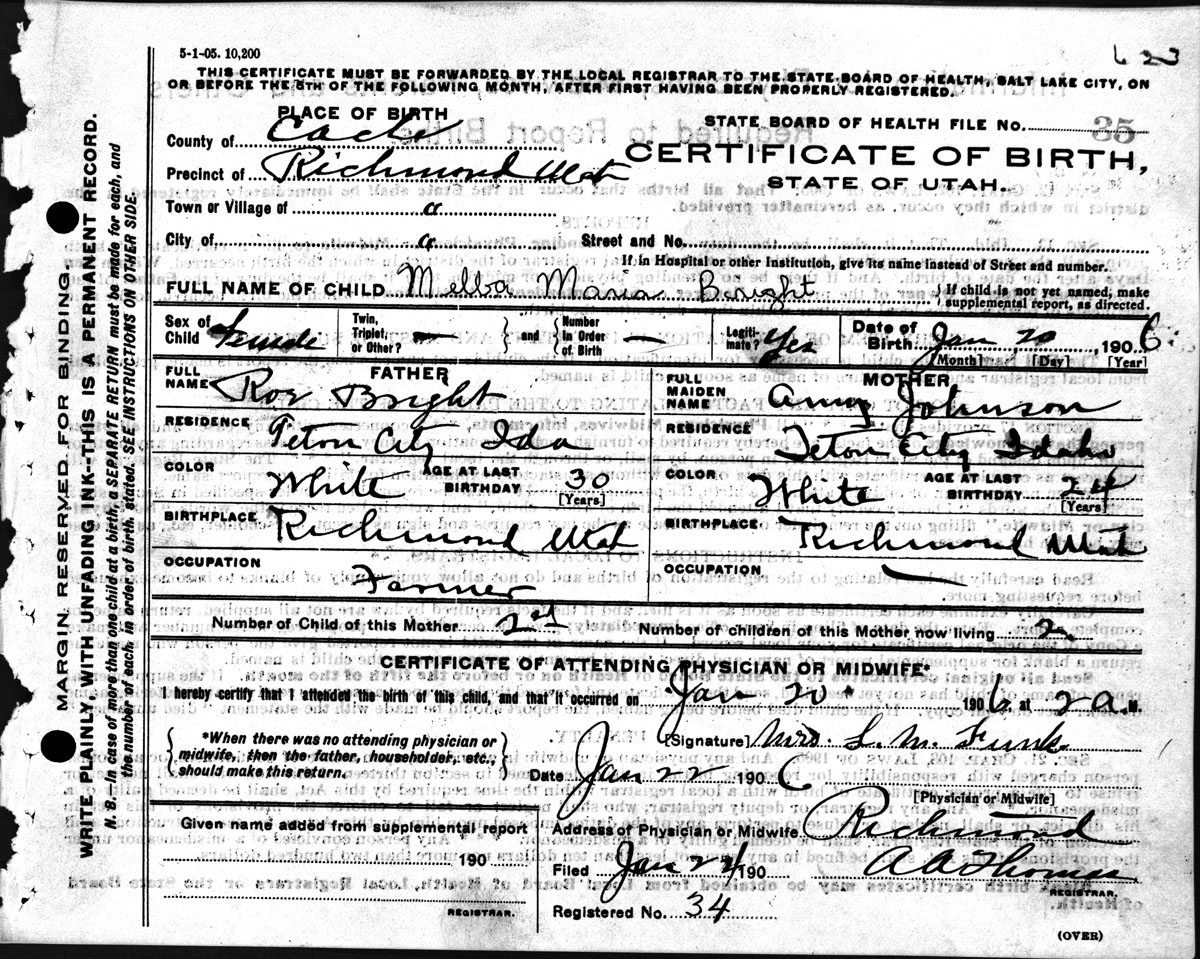 5-1-05. 10,200
623
THIS CERTIFICATE MUST BE FORWARDED BY THE LOCAL REGISTRAR TO THE STATE BOARD OF HEALTH, SALT LAKE CITY, ON
OR BEFORE THE 5TH OF THE FOLLOWING MONTH, AFTER FIRST HAVING BEEN PROPERLY REGISTERED.
PLACE OF BIRTH
County of Cache
STATE BOARD OF HEALTH FILE No. 35
Precinct of Richmond Utah
CERTIFICATE OF BIRTH,
STATE OF UTAH.
Town or Village of "
City of "
Street and No.
If in Hospital or other Institution, give its name instead of Street and number.
FULL NAME OF CHILD Melba Maria Bright
} If child is not yet named, make
supplemental report, as directed.
Sex of Child Female
Twin, Triplet, or Other? — } and { Number in Order of Birth —
Legitimate? Yes
Date of Birth Jan 20, 1906
[Month] [Day] [Year]
FATHER
FULL NAME Roy Bright
RESIDENCE Teton City Ida
COLOR White
AGE AT LAST BIRTHDAY 30
[Years]
BIRTHPLACE Richmond Utah
OCCUPATION Farmer
MOTHER
FULL MAIDEN NAME Amy Johnson
RESIDENCE Teton City Idaho
COLOR White
AGE AT LAST BIRTHDAY 24
[Years]
BIRTHPLACE Richmond Utah
OCCUPATION —
Number of Child of this Mother 2nd
Number of children of this Mother now living 2
CERTIFICATE OF ATTENDING PHYSICIAN OR MIDWIFE*
I hereby certify that I attended the birth of this child, and that it occurred on Jan 20 1906 at 2 a. M.
{ *When there was no attending physician or
midwife, then the father, householder, etc.,
should make this return. }
[Signature] Mrs. L. M. Funk
Date Jan 22 1906
[Physician or Midwife]
Given name added from supplemental report
190
REGISTRAR.
Address of Physician or Midwife Richmond
Filed Jan 24 190
A A Thomas
REGISTRAR.
Registered No. 34
(OVER)
MARGIN RESERVED FOR BINDING.
WRITE PLAINLY, WITH UNFADING INK--THIS IS A PERMANENT RECORD.
N. B.—In case of more than one child at a birth, a SEPARATE RETURN must be made for each, and
the number of each, in order of birth, stated. SEE INSTRUCTIONS ON OTHER SIDE.